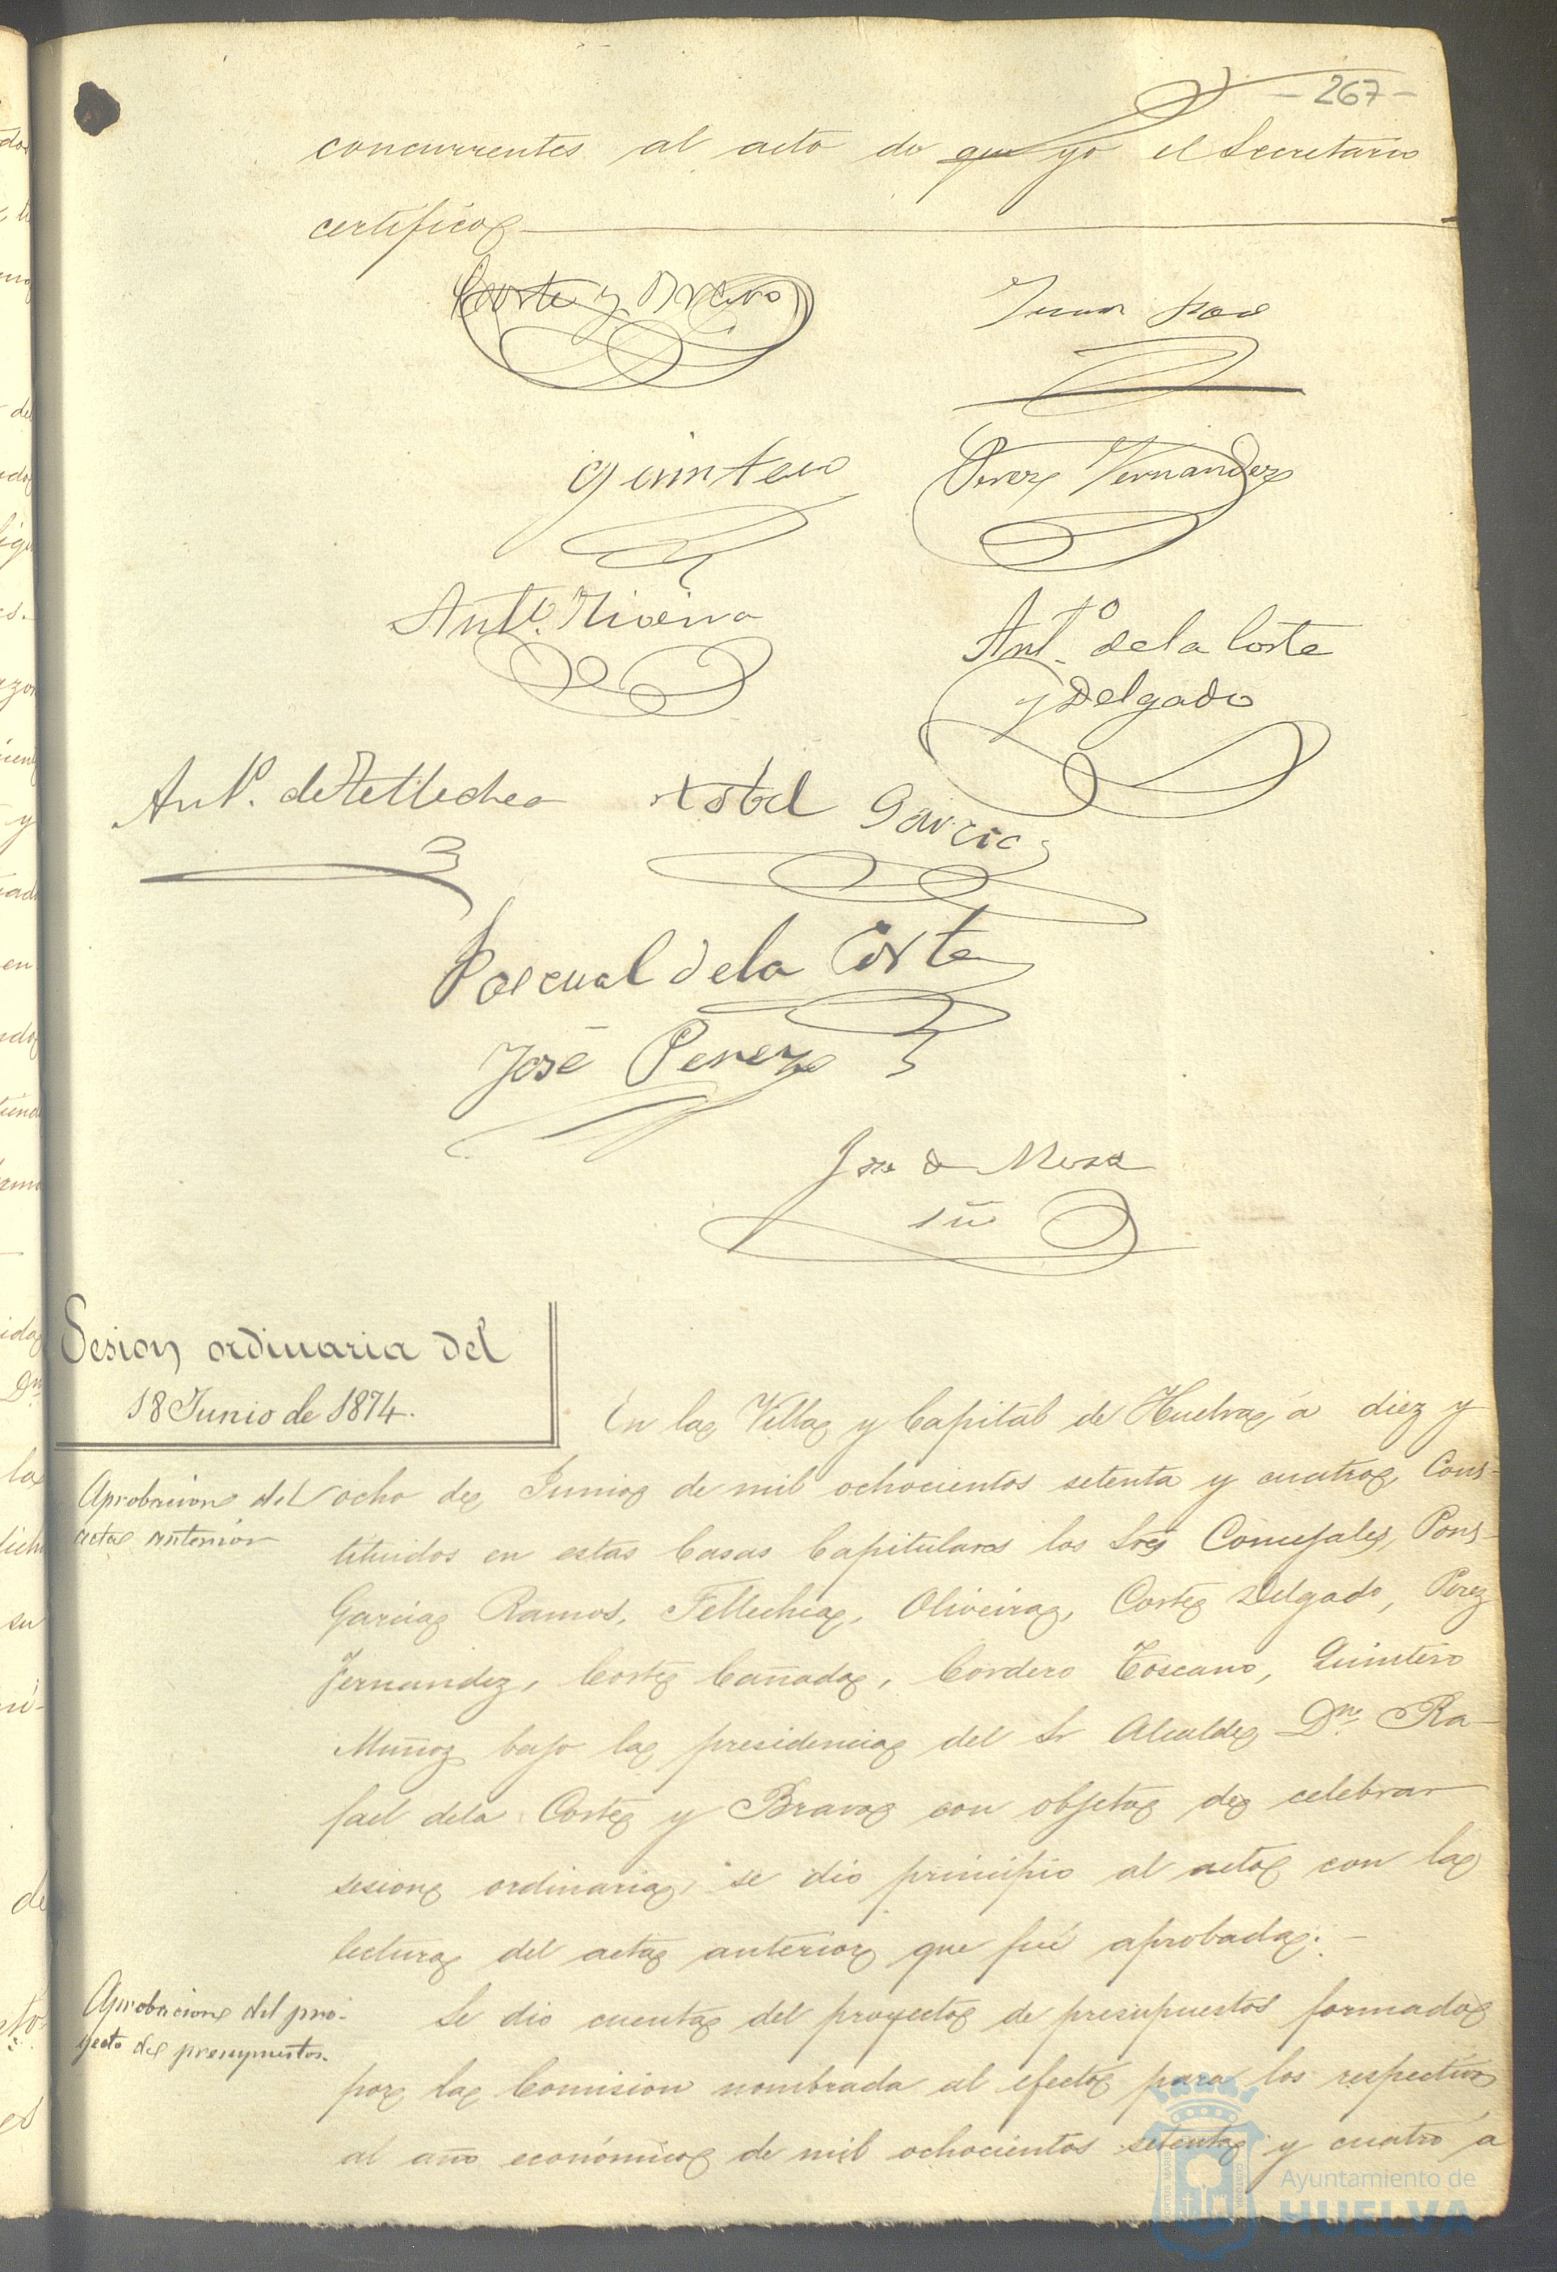 - 267 -
concurrentes al acto de que yo el Secretario
certifico
Corte y Bravo
Juan
Quintero
Perez Fernandez
Antº.
Antº de la Corte
y Delgado
Antº. de Tellechea
García
Pascual de la Corte
José Perez
José de Mesa
Sesion ordinaria del
18 Junio de 1874.
En la Villa y Capital de Huelva, á diez y
Aprobacion del
acta anterior
ocho de Junio de mil ochocientos setenta y cuatro, Cons-
tituidos en estas Casas Capitulares los Sres Concejales, Pons-
Garcia Ramos, Tellechea, Oliveira, Corte Delgado, Perez
Fernandez, Corte Cañada, Cordero Toscano, Quintero
Muñoz bajo la presidencia del Sr Alcalde Dn. Ra-
fael dela Corte y Bravo con objeto de celebrar
sesion ordinaria, se dio principio al acto con la
lectura del acta anterior que fué aprobada. -
Aprobacion del pro-
yecto de presupuestos.
Se dio cuenta del proyecto de presupuestos formado
por la Comision nombrada al efecto para los respectivos
al año económico de mil ochocientos setenta y cuatro a
Ayuntamiento de
HUELVA